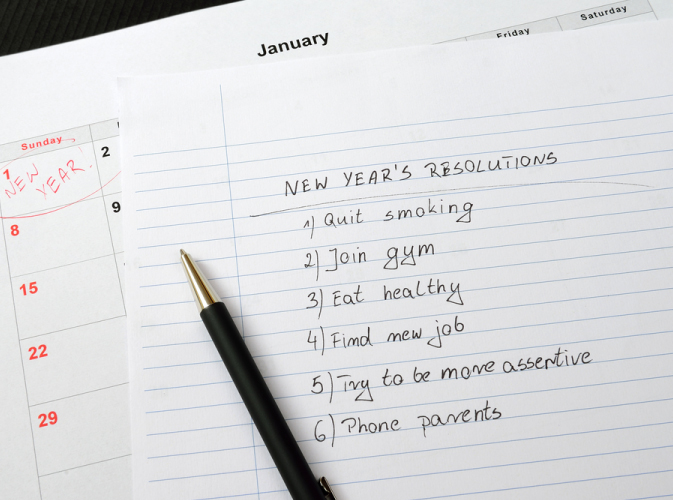 January
Friday
Saturday
Sunday
1
NEW
YEAR!
2
8
9
15
22
29
NEW YEAR'S RESOLUTIONS
1) Quit smoking
2) Join gym
3) Eat healthy
4) Find new job
5) Try to be more assertive
6) Phone parents